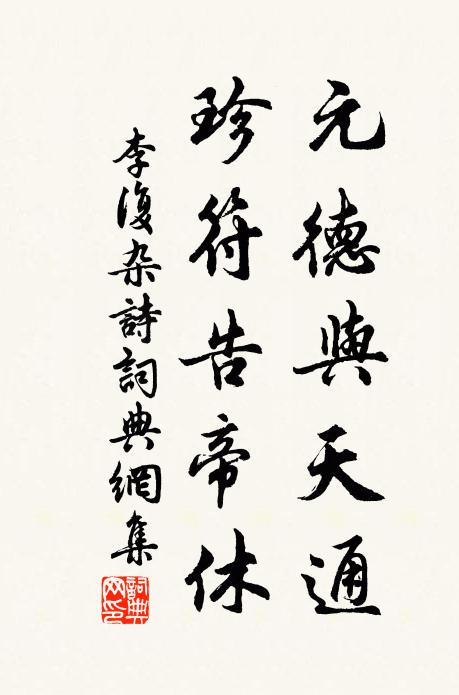 元德與天通
珍符告帝休
李復杂詩詞典網集
詞典网印